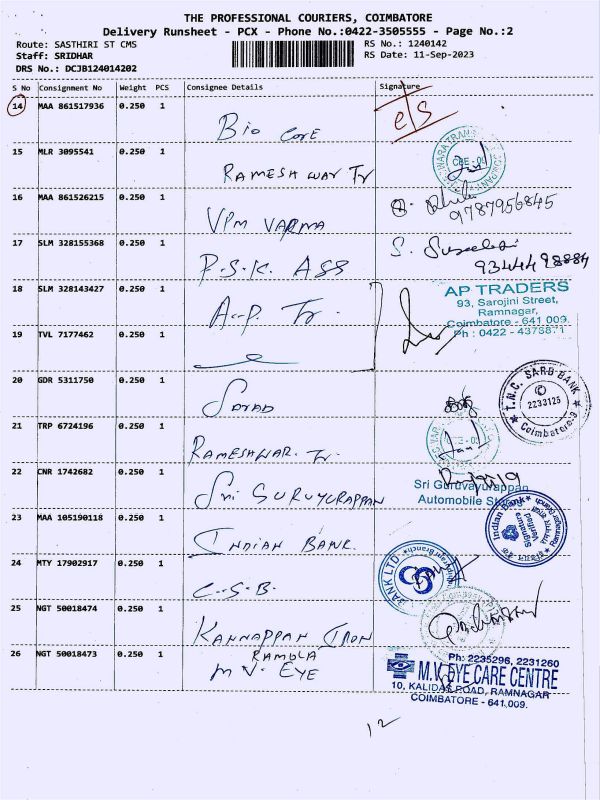 THE PROFESSIONAL COURIERS, COIMBATORE
Delivery Runsheet - PCX - Phone No.:0422-3505555 - Page No.:2
Route: SASTHIRI ST CMS
RS No.: 1240142
Staff: SRIDHAR
RS Date: 11-Sep-2023
DRS No.: DCJB124014202
S No Consignment No Weight PCS Consignee Details Signature
14 MAA 861517936 0.250 1
Bio Core
15 MLR 3095541 0.250 1
RAMESHWAR Tr
16 MAA 861526215 0.250 1
VPM VARMA
9787956845
17 SLM 328155368 0.250 1
P.S.K. ASS
S.
93444 98884
18 SLM 328143427 0.250 1
A.P. Tr.
AP TRADERS
93, Sarojini Street,
Ramnagar,
Coimbatore - 641 009.
Ph : 0422 - 4378871
19 TVL 7177462 0.250 1
20 GDR 5311750 0.250 1
T.N.C. SARB BANK
2233125
Coimbatore-9
21 TRP 6724196 0.250 1
RAMESHWAR. Tr.
22 CNR 1742682 0.250 1
Sri GURUYURAPPAN
Sri Guruvayurappan
Automobile
23 MAA 105190118 0.250 1
INDIAN BANK.
Indian Bank
24 MTY 17902917 0.250 1
C.S.B.
BANK LTD.
25 NGT 50018474 0.250 1
KANNAPPAN IRON
26 NGT 50018473 0.250 1
RAMOLA
M V. EYE
Ph: 2235296, 2231260
M.V. EYE CARE CENTRE
10, KALIDAS ROAD, RAMNAGAR
COIMBATORE - 641,009.
12